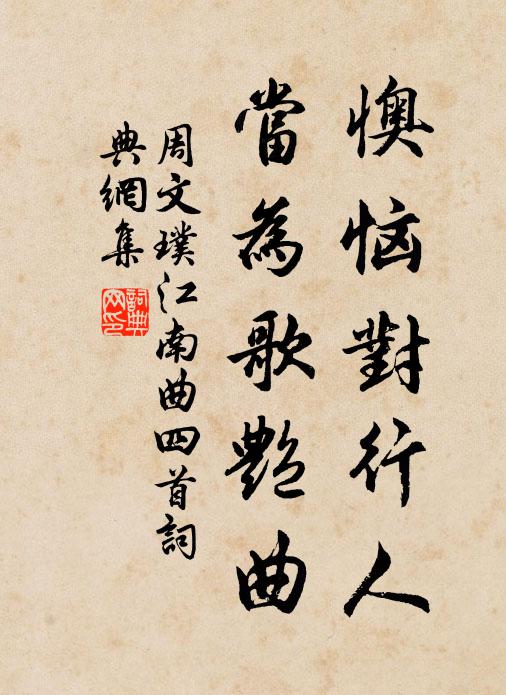 懊恼對行人
當為歌艷曲
周文璞江南曲四首詞
典網集
詞典
网印